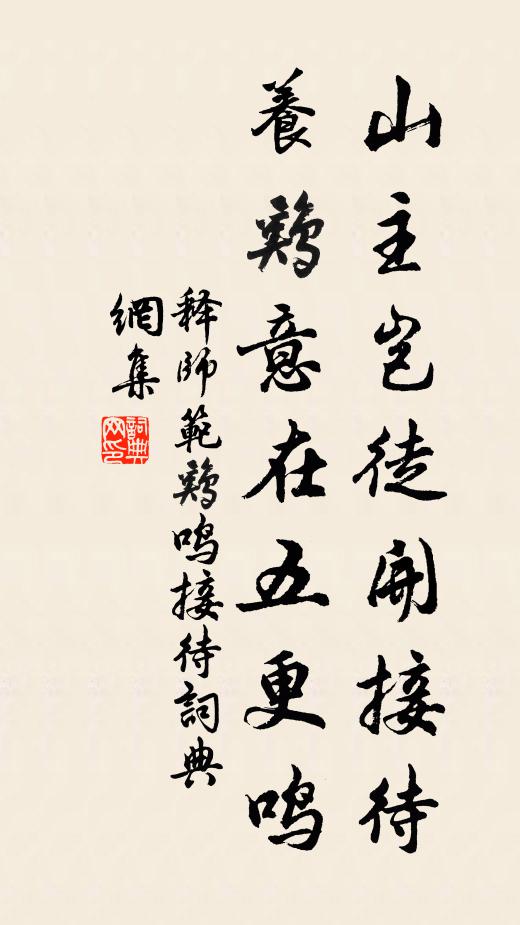 山主岂徒開接待
養鷄意在五更鳴
释師範鷄鳴接待詞典
網集
詞典
网印